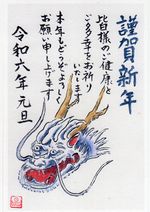 謹賀新年
皆様のご健康と
ご多幸をお祈り
いたします
本年もどうぞよろしく
お願い申し上げます
令和六年 元旦